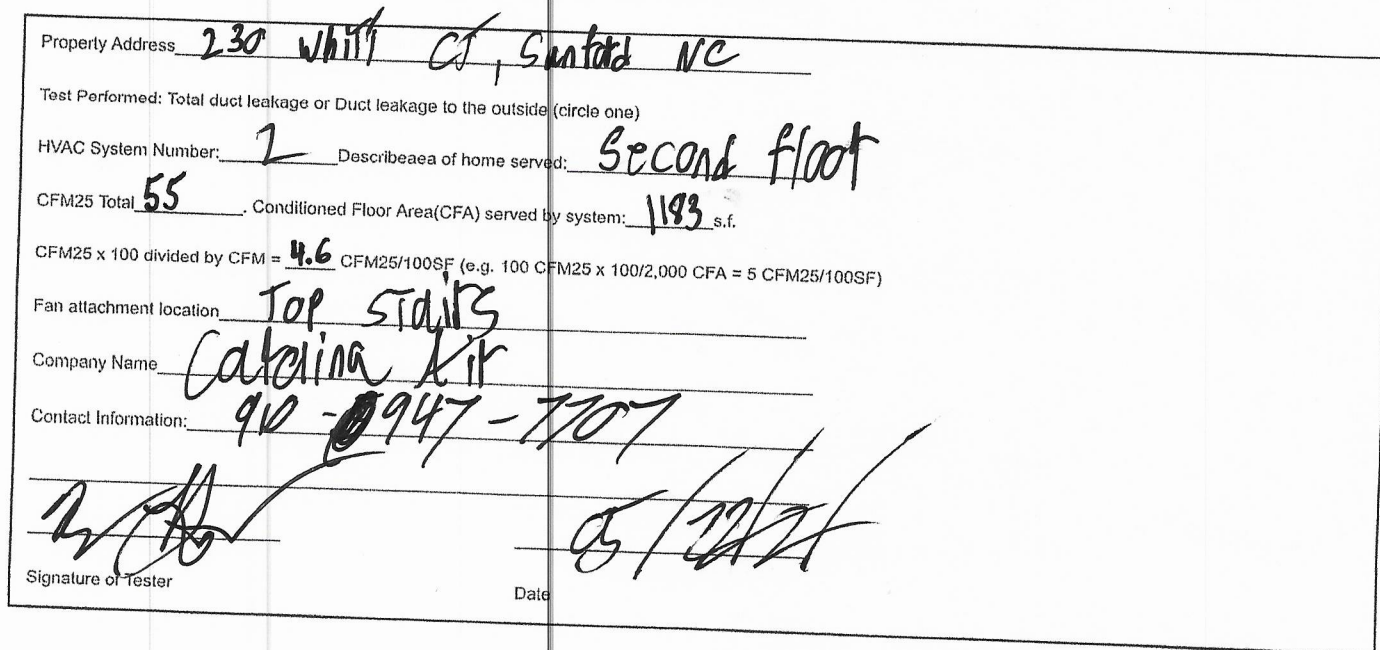 Property Address 230 Whitt CT, Sanford NC
Test Performed: Total duct leakage or Duct leakage to the outside (circle one)
HVAC System Number: 2 Describeaea of home served: Second floor
CFM25 Total 55 . Conditioned Floor Area(CFA) served by system: 1183 s.f.
CFM25 x 100 divided by CFM = 4.6 CFM25/100SF (e.g. 100 CFM25 x 100/2,000 CFA = 5 CFM25/100SF)
Fan attachment location Top STairs
Company Name Catalina Air
Contact Information: 910 - 947 - 7707
05/22/
Signature of Tester Date